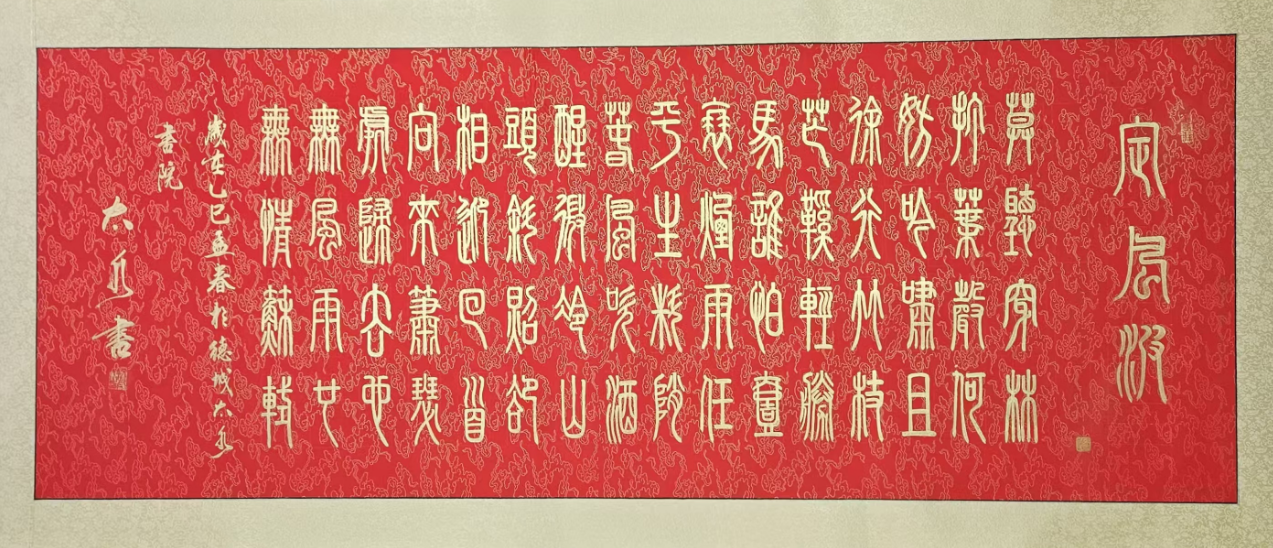 定風波
莫聽穿林
打葉聲何
妨吟嘯且
徐行竹杖
芒鞵輕勝
馬誰怕壹
蓑煙雨任
平生料峭
萅風吹酒
醒微冷山
頭斜照卻
相迎回首
向來蕭瑟
處歸去也
無風雨也
無情蘇軾
歲在乙巳孟春於德城
書院
書